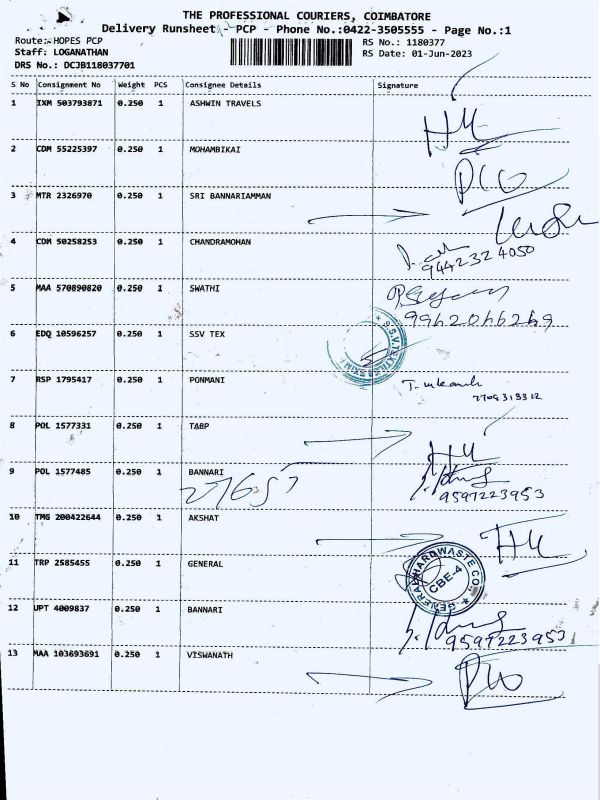 THE PROFESSIONAL COURIERS, COIMBATORE
Delivery Runsheet - PCP - Phone No.:0422-3505555 - Page No.:1
Route:- HOPES PCP
RS No.: 1180377
Staff: LOGANATHAN
RS Date: 01-Jun-2023
DRS No.: DCJB118037701
S No Consignment No Weight PCS Consignee Details Signature
1 IXM 503793871 0.250 1 ASHWIN TRAVELS
2 CDM 55225397 0.250 1 MOHAMBIKAI
3 MTR 2326970 0.250 1 SRI BANNARIAMMAN
4 CDM 50258253 0.250 1 CHANDRAMOHAN
9442324050
5 MAA 570890820 0.250 1 SWATHI
9962066269
6 EDQ 10596257 0.250 1 SSV TEX
7 RSP 1795417 0.250 1 PONMANI
8 POL 1577331 0.250 1 TABP
9 POL 1577485 0.250 1 BANNARI
9597223953
10 TMG 200422644 0.250 1 AKSHAT
11 TRP 2585455 0.250 1 GENERAL
GENERAL HARDWASTE CO.
CBE-4
12 UPT 4009837 0.250 1 BANNARI
9597223953
13 MAA 103693691 0.250 1 VISWANATH